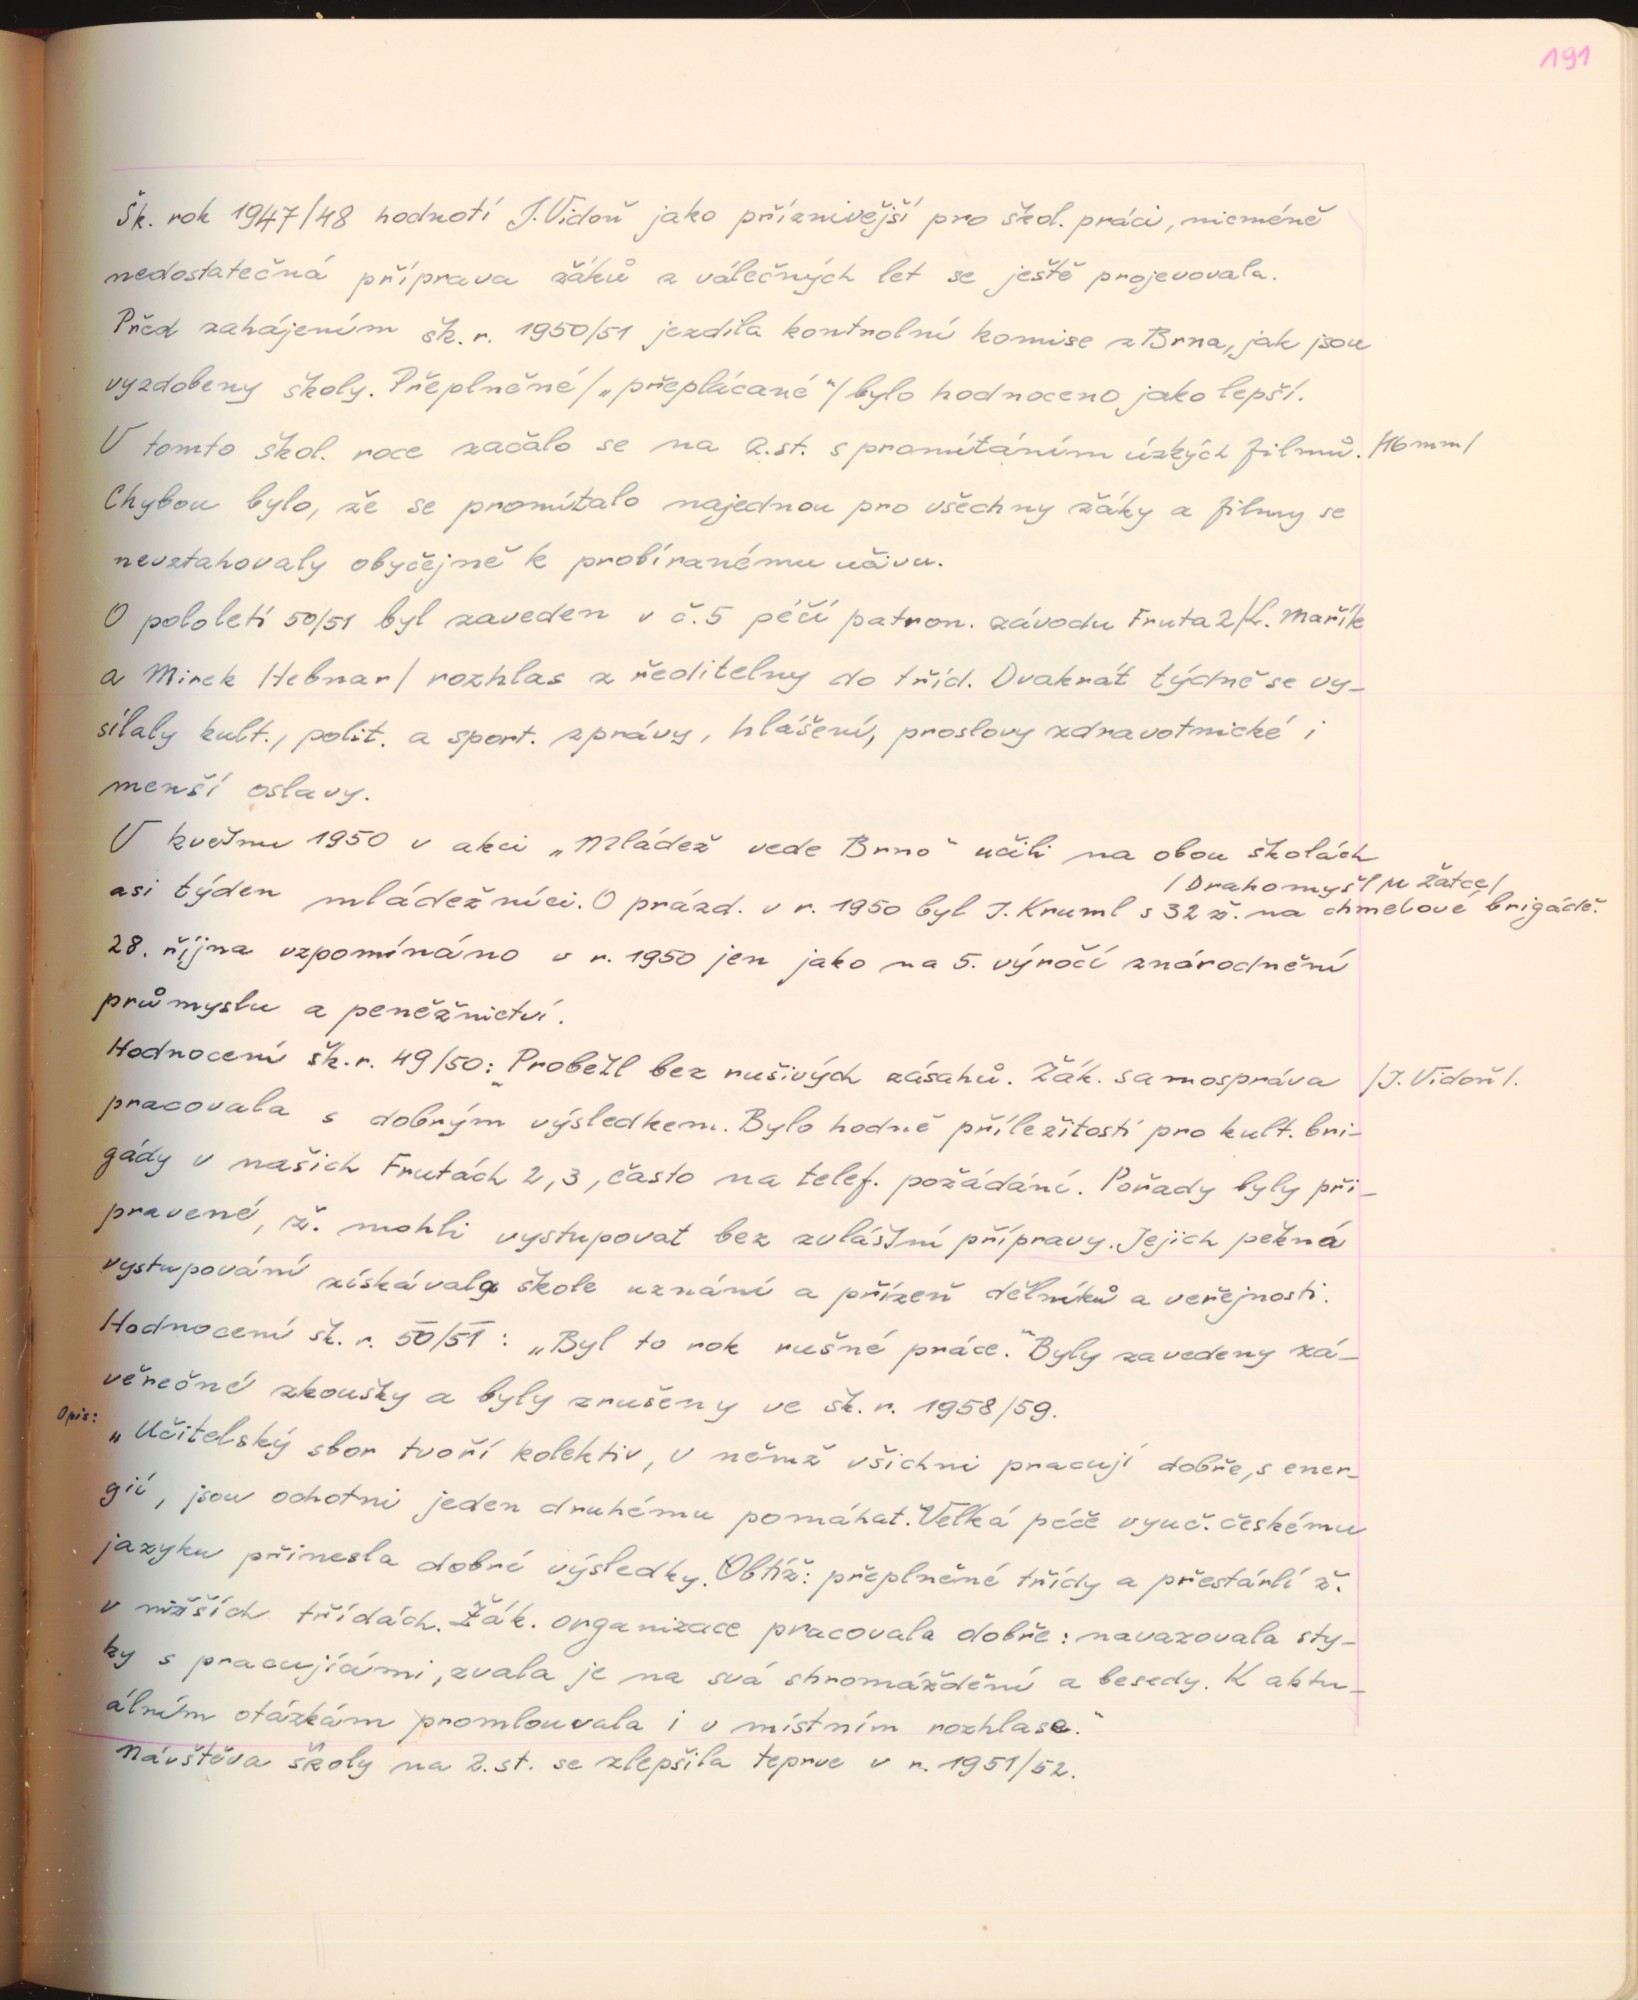 191
Šk. rok 1947/48 hodnotí J. Vidoň jako příznivější pro škol. práci, nicméně
nedostatečná příprava žáků z válečných let se ještě projevovala.
Před zahájením šk. r. 1950/51 jezdila kontrolní komise z Brna, jak jsou
vyzdobeny školy. Přeplněné /„přeplácané"/ bylo hodnoceno jako lepší.
V tomto škol. roce začalo se na 2. st. s promítáním úzkých filmů. /16 mm/
Chybou bylo, že se promítalo najednou pro všechny žáky a filmy se
nevztahovaly obyčejně k probíranému učivu.
O pololetí 50/51 byl zaveden v č. 5 péčí patron. závodu Fruta 2 /L. Mařík
a Mirek Hebnar/ rozhlas z ředitelny do tříd. Dvakrát týdně se vy-
sílaly kult., polit. a sport. zprávy, hlášení, proslovy zdravotnické i
menší oslavy.
V květnu 1950 v akci „Mládež vede Brno" učili na obou školách
/Drahomyšl u Žatce/
asi týden mládežníci. O prázd. v r. 1950 byl J. Kruml s 32 ž. na chmelové brigádě.
28. října vzpomínáno v r. 1950 jen jako na 5. výročí znárodnění
průmyslu a peněžnictví.
Hodnocení šk. r. 49/50: „Proběhl bez rušivých zásahů. Žák. samospráva /J. Vidoň/.
pracovala s dobrým výsledkem. Bylo hodně příležitostí pro kult. bri-
gády v našich Frutách 2, 3, často na telef. požádání. Pořady byly při-
pravené, ž. mohli vystupovat bez zvláštní přípravy. Jejich pěkná
vystupování získávala škole uznání a přízeň dělníků a veřejnosti.
Hodnocení šk. r. 50/51: „Byl to rok rušné práce." Byly zavedeny zá-
věrečné zkoušky a byly zrušeny ve šk. r. 1958/59.
Opis: „Učitelský sbor tvoří kolektiv, v němž všichni pracují dobře, s ener-
gií, jsou ochotni jeden druhému pomáhat. Velká péče vyuč. českému
jazyku přinesla dobré výsledky. Obtíž: přeplněné třídy a přestárlí ž.
v nižších třídách. Žák. organizace pracovala dobře: navazovala sty-
ky s pracujícími, zvala je na svá shromáždění a besedy. K aktu-
álním otázkám promlouvala i v místním rozhlase."
Návštěva školy na 2. st. se zlepšila teprve v r. 1951/52.